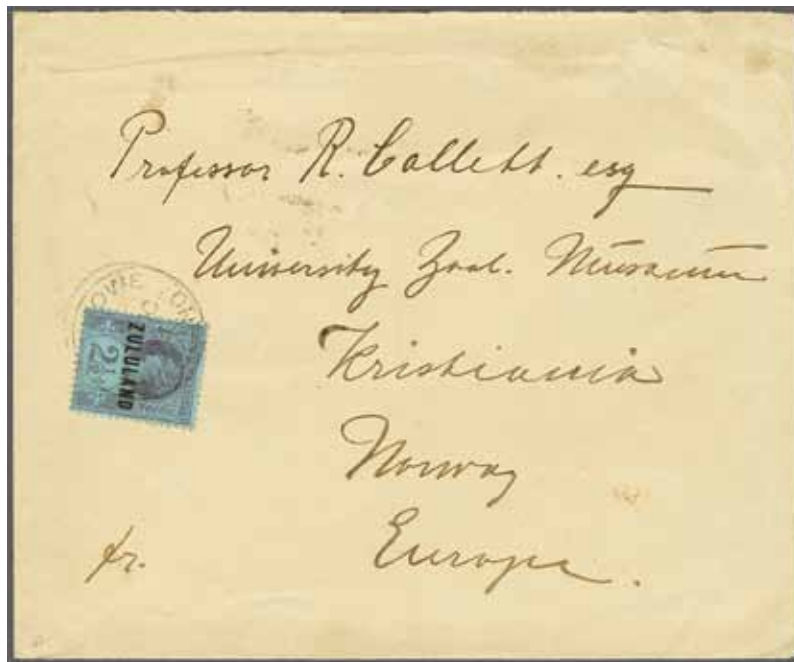 Professor R. Collett. esq
University Zool. Museum
Kristiania
Norway
Europe.
fr.
ZULULAND
2½